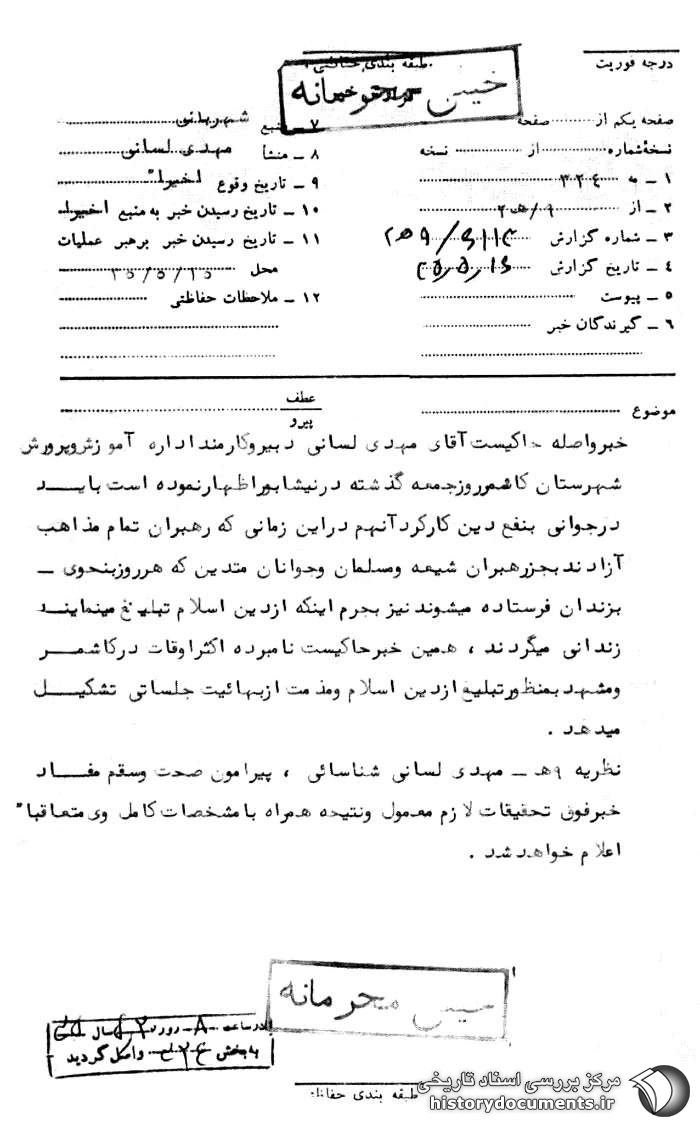 درجه فوریت
طبقه بندی حفاظتی
خیلی محرمانه
صفحه یکم از ........ صفحه
نسخه شماره ........ از ........ نسخه
۱ ـ به ۳۲۴
۲ ـ از ۹/ه‍
۳ ـ شماره گزارش
۴ ـ تاریخ گزارش
۵ ـ پیوست
۶ ـ گیرندگان خبر
۷ ـ منبع شهربانی
۸ ـ منشأ مهدی لسانی
۹ ـ تاریخ وقوع اخیرا"
۱۰ ـ تاریخ رسیدن خبر به منبع اخیرا
۱۱ ـ تاریخ رسیدن خبر برهبر عملیات
محل
۱۲ ـ ملاحظات حفاظتی
موضوع
عطف
پیرو
خبرواصله حاکیست آقای مهدی لسانی دبیروکارمنداداره آموزش وپرورش
شهرستان کاشمرروزجمعه گذشته درنیشابوراظهارنموده است بایـــد
درجوانی بنفع دین کارکردآنهم دراین زمانی که رهبران تمام مذاهب
آزادندبجزرهبران شیعه ومسلمان وجوانان متدین که هرروزبنحوی ـ
بزندان فرستاده میشوند نیز بجرم اینکه ازدین اسلام تبلیغ مینماینـد
زندانی میگردند ، همین خبرحاکیست نامبرده اکثراوقات درکاشمـر
ومشهدبمنظورتبلیغ ازدین اسلام ومذمت ازبهائیت جلساتی تشکیـل
میدهد .
نظریه ۹هـ ـ مهدی لسانی شناسائی ، پیرامون صحت وسقم مفــاد
خبرفوق تحقیقات لازم معمول ونتیجه همراه بامشخصات کامل وی متعاقبا"
اعلام خواهدشد .
خیلی محرمانه
در ساعت ۸ روز سال
به بخش واصل گردید
طبقه بندی حفاظ
مرکز بررسی اسناد تاریخی
historydocuments.ir